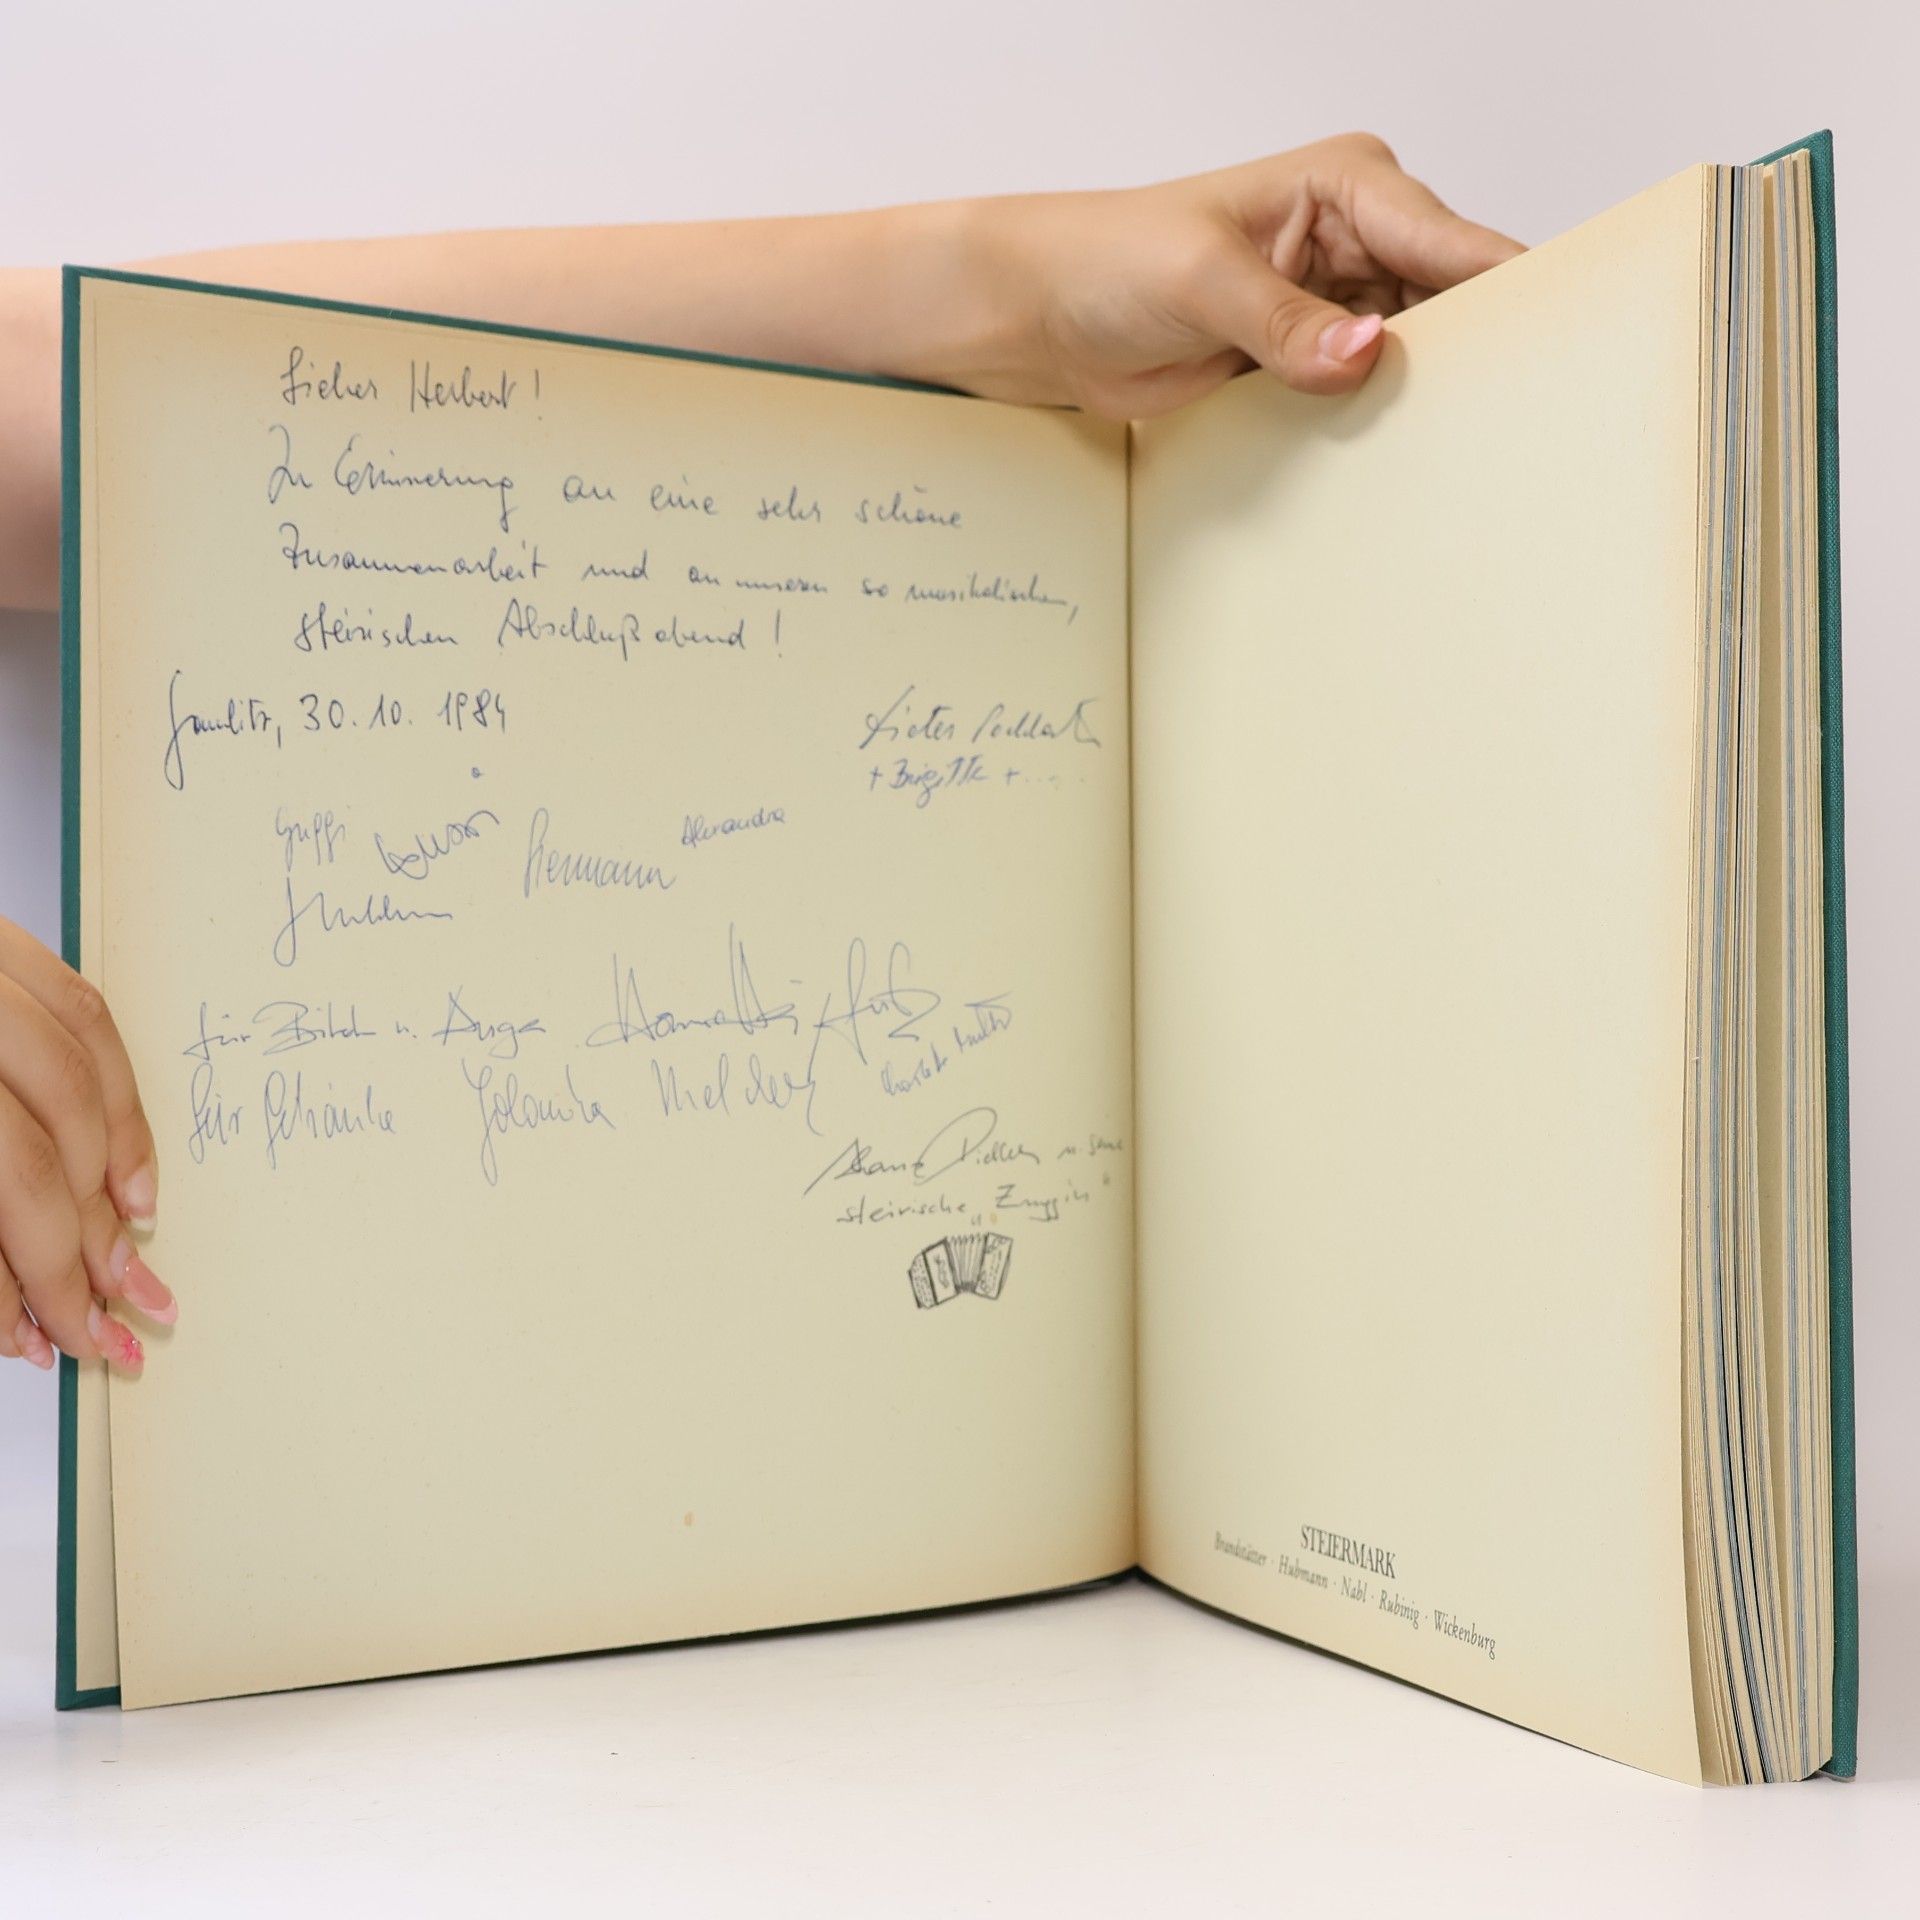 Lieber Herbert!
Zu Erinnerung an eine sehr schöne
Zusammenarbeit und an unseren so musikalischen,
steirischen Abschlußabend!
Gamlitz, 30.10.1984
Dieter
+ Brigitte + ....
Guggi
Hermann
Alexandra
für Bild u. Auge
für Getränke Jolanda
u. seine
steirische „Zuggin"
STEIERMARK
Brandstätter · Hubmann · Nabl · Rubinig · Wickenburg